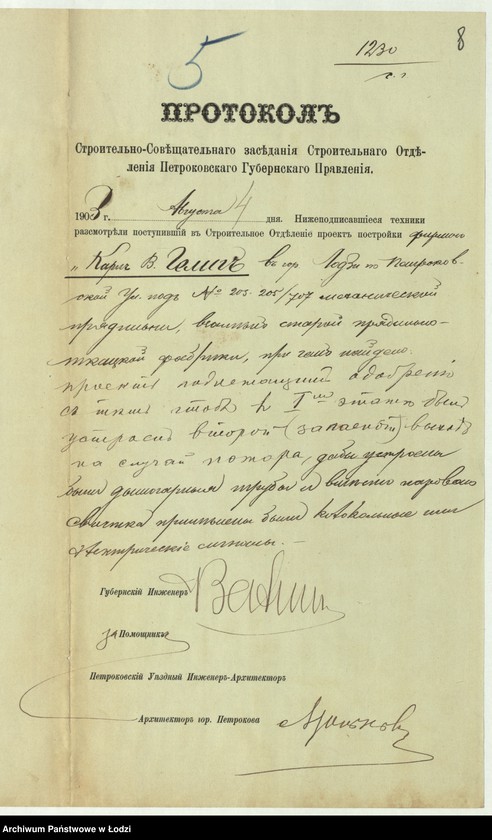 5
1230
8
ПРОТОКОЛЪ
Строительно-Совѣщательнаго засѣданія Строительнаго Отдѣ-
ленія Петроковскаго Губернскаго Правленія.
1903 г. Августа 4 дня. Нижеподписавшіеся техники
разсмотрѣли поступившій въ Строительное Отдѣленіе проектъ постройки фирмою
„Карлъ В. въ гор. Лодзи по Петроков-
ской ул. подъ № 203. 205/707 механической
прядильни, вмѣсто старой прядильно-
ткацкой фабрики, при чемъ найдено:
проектъ подлежащимъ одобренію
съ тѣмъ чтобы въ I этажѣ былъ
устроенъ второй (запасный) выходъ
на случай пожара, дабы устроены
были дымогарныя трубы и вмѣсто парового
свистка примѣнены были колокольные или
электрическіе сигналы. —
Губернскій Инженеръ
за Помощникъ
Петроковскій Уѣздный Инженеръ-Архитекторъ
Архитекторъ гор. Петрокова
Archiwum Państwowe w Łodzi